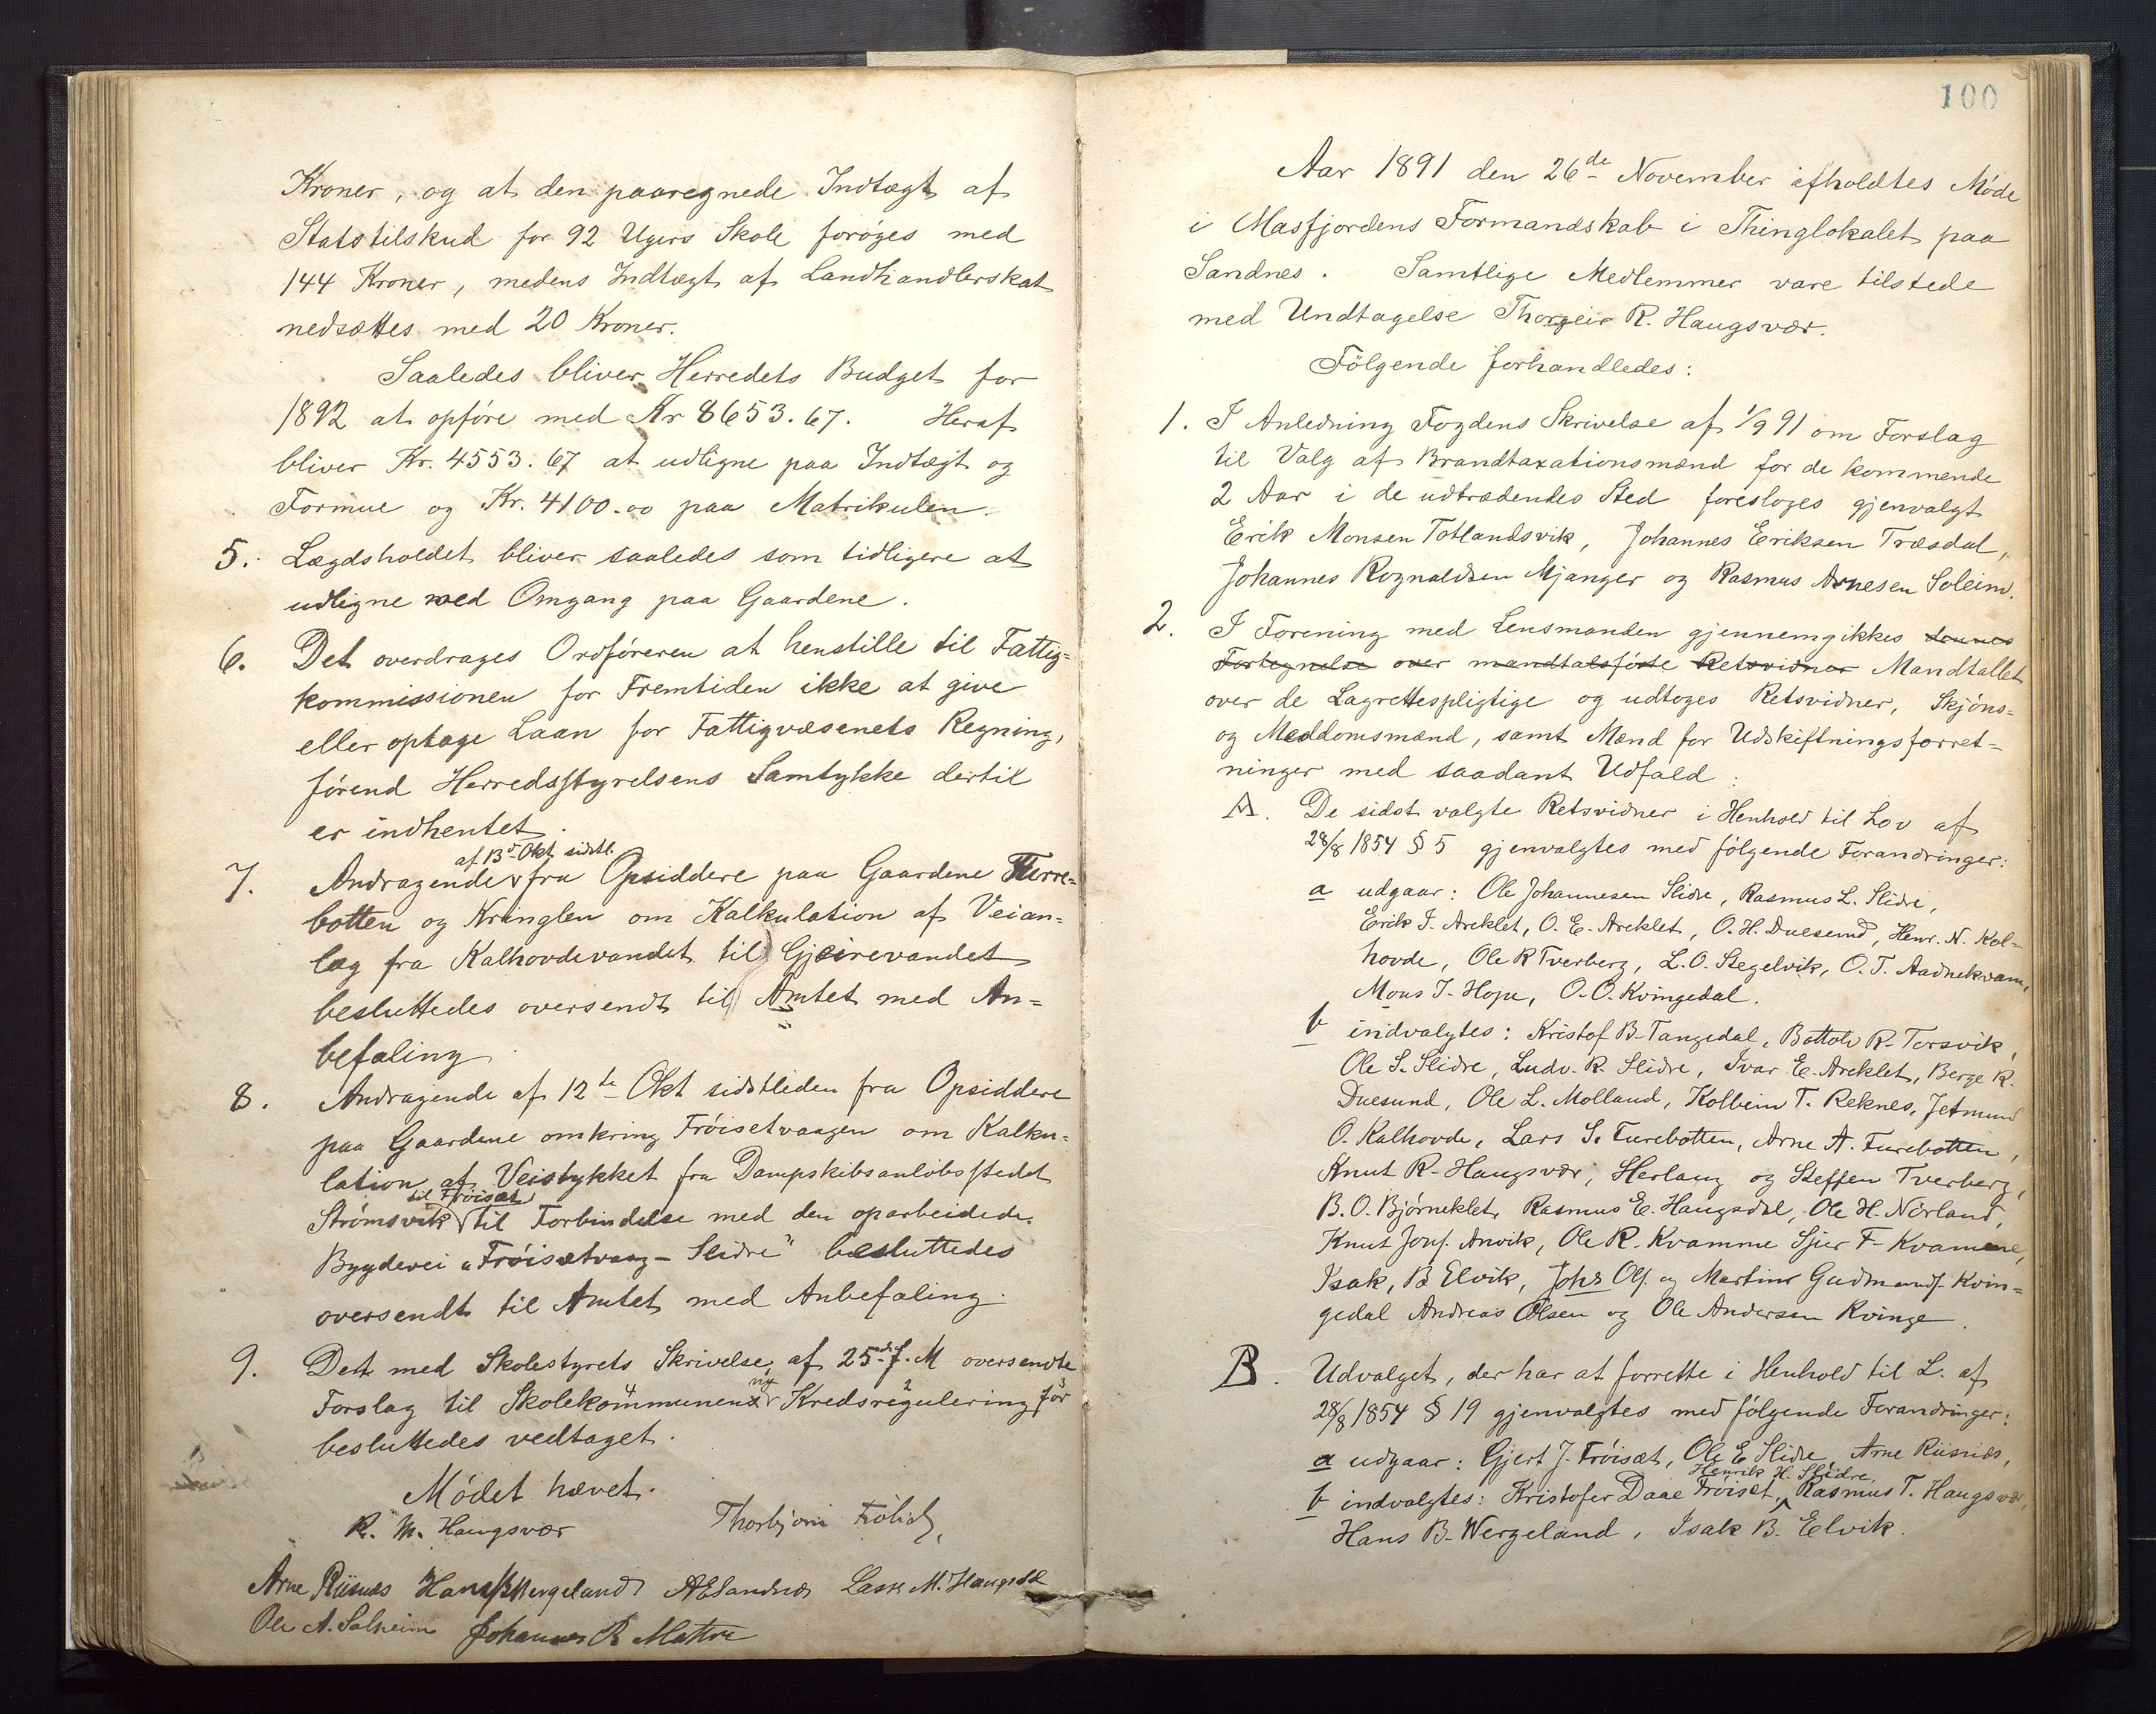 Kroner, og at den paaregnede Indtægt af
Statstilskud for 92 Ugers Skole forøges med
144 Kroner, medens Indtægt af Landhandlerskat
nedsættes med 20 Kroner.
Saaledes bliver Herredets Budget for
1892 at opføre med Kr 8653.67. Heraf
bliver Kr. 4553.67 at udligne paa Indtægt og
Formue og Kr. 4100.00 paa Matrikulen.
5. Lægdsholdet bliver saaledes som tidligere at
udligne med Omgang paa Gaardene.
6. Det overdrages Ordføreren at henstille til Fattig=
kommissionen for Fremtiden ikke at give
eller optage Laan for Fattigvæsenets Regning,
førend Herredsstyrelsens Samtykke dertil
er indhentet.
af 13de Okt sidstl.
7. Andragende fra Opsiddere paa Gaardene Furre=
botten og Kringlen om Kalkulation af Veian=
læg fra Kalhovdevandet til Gjeirevandet
besluttedes oversendt til Amtet med An=
befaling
8. Andragende af 12te Okt sidstleden fra Opsiddere
paa Gaardene omkring Frøisetvaagen om Kalku=
lation af Veistykket fra Dampskibsanløbsstedet
til Frøiset
Strømsvik til Forbindelse med den oparbeidede
Bygdevei "Frøisetvaag - Slidre" besluttedes
oversendt til Amtet med Anbefaling.
9. Det med Skolestyrets Skrivelse af 25de f. M oversendte
ny 4 2 3
Forslag til Skolekommunens Kredsregulering for
besluttedes vedtaget.
Mødet hævet.
R. M. Haugsvær Thorbjørn Frölich
Arne Riisnæs Hans B Wergeland A E Sandnæs Lasse M. Haugsdal
Ole A. Solheim Johannes R Mattre
100
Aar 1891 den 26de November afholdtes Møde
i Masfjordens Formandskab i Thinglokalet paa
Sandnes. Samtlige Medlemmer vare tilstede
med Undtagelse Thorgeir R. Haugsvær.
Følgende forhandledes:
1. I Anledning Fogdens Skrivelse af 1/9 91 om Forslag
til Valg af Brandtaxationsmænd for de kommende
2 Aar i de udtrædendes Sted foresloges gjenvalgt
Erik Monsen Totlandsvik, Johannes Eriksen Træsdal,
Johannes Rognaldsen Mjanger og Rasmus Arnesen Soleim.
2. I Forening med Lensmanden gjennemgikkes dennes
Fortegnelse over mandtalsførte Retsvidner Mandtallet
over de Lagrettespligtige og udtoges Retsvidner, Skjøns=
og Meddomsmænd, samt Mænd for Udskiftningsforret=
ninger med saadant Udfald:
A. De sidst valgte Retsvidner i Henhold til Lov af
28/8 1854 § 5 gjenvalgtes med følgende Forandringer:
a udgaar: Ole Johannesen Slidre, Rasmus L. Slidre,
Erik I. Areklet, O. E. Areklet, O. H. Duesund, Henr. N. Kol=
hovde, Ole R Tverberg, L. O. Stegelvik, O. T. Aadnekvam,
Mons J. Hope, O. O. Kvingedal.
b indvalgtes: Kristof B. Tangedal, Bottolv R. Torsvik,
Ole S. Slidre, Ludv. R. Slidre, Ivar E. Areklet, Berge R.
Duesund, Ole L. Molland, Kolbein T. Reknes, Jetmund
O. Kalhovde, Lars S. Furebotten, Arne A. Furebotten,
Knut R. Haugsvær, Herlaug og Steffen Tverberg,
B. O. Bjørneklet, Rasmus E. Haugsdal, Ole H. Nörland,
Knut Jons. Anvik, Ole R. Kvamme Sjur F. Kvamme,
Isak, B Elvik, Johs Ols. og Martinus Gudmunds. Kvin=
gedal Andreas Olsen og Ole Andersen Kvinge.
B. Udvalget, der har at forrette i Henhold til L. af
28/8 1854 § 19 gjenvalgtes med følgende Forandringer:
a udgaar: Gjert J. Frøiset, Ole E Slidre, Arne Riisnæs,
Henrik H. Slidre,
b indvalgtes: Kristofer Daae Frøiset, Rasmus T. Haugsvær,
Hans B. Wergeland, Isak B. Eelvik.